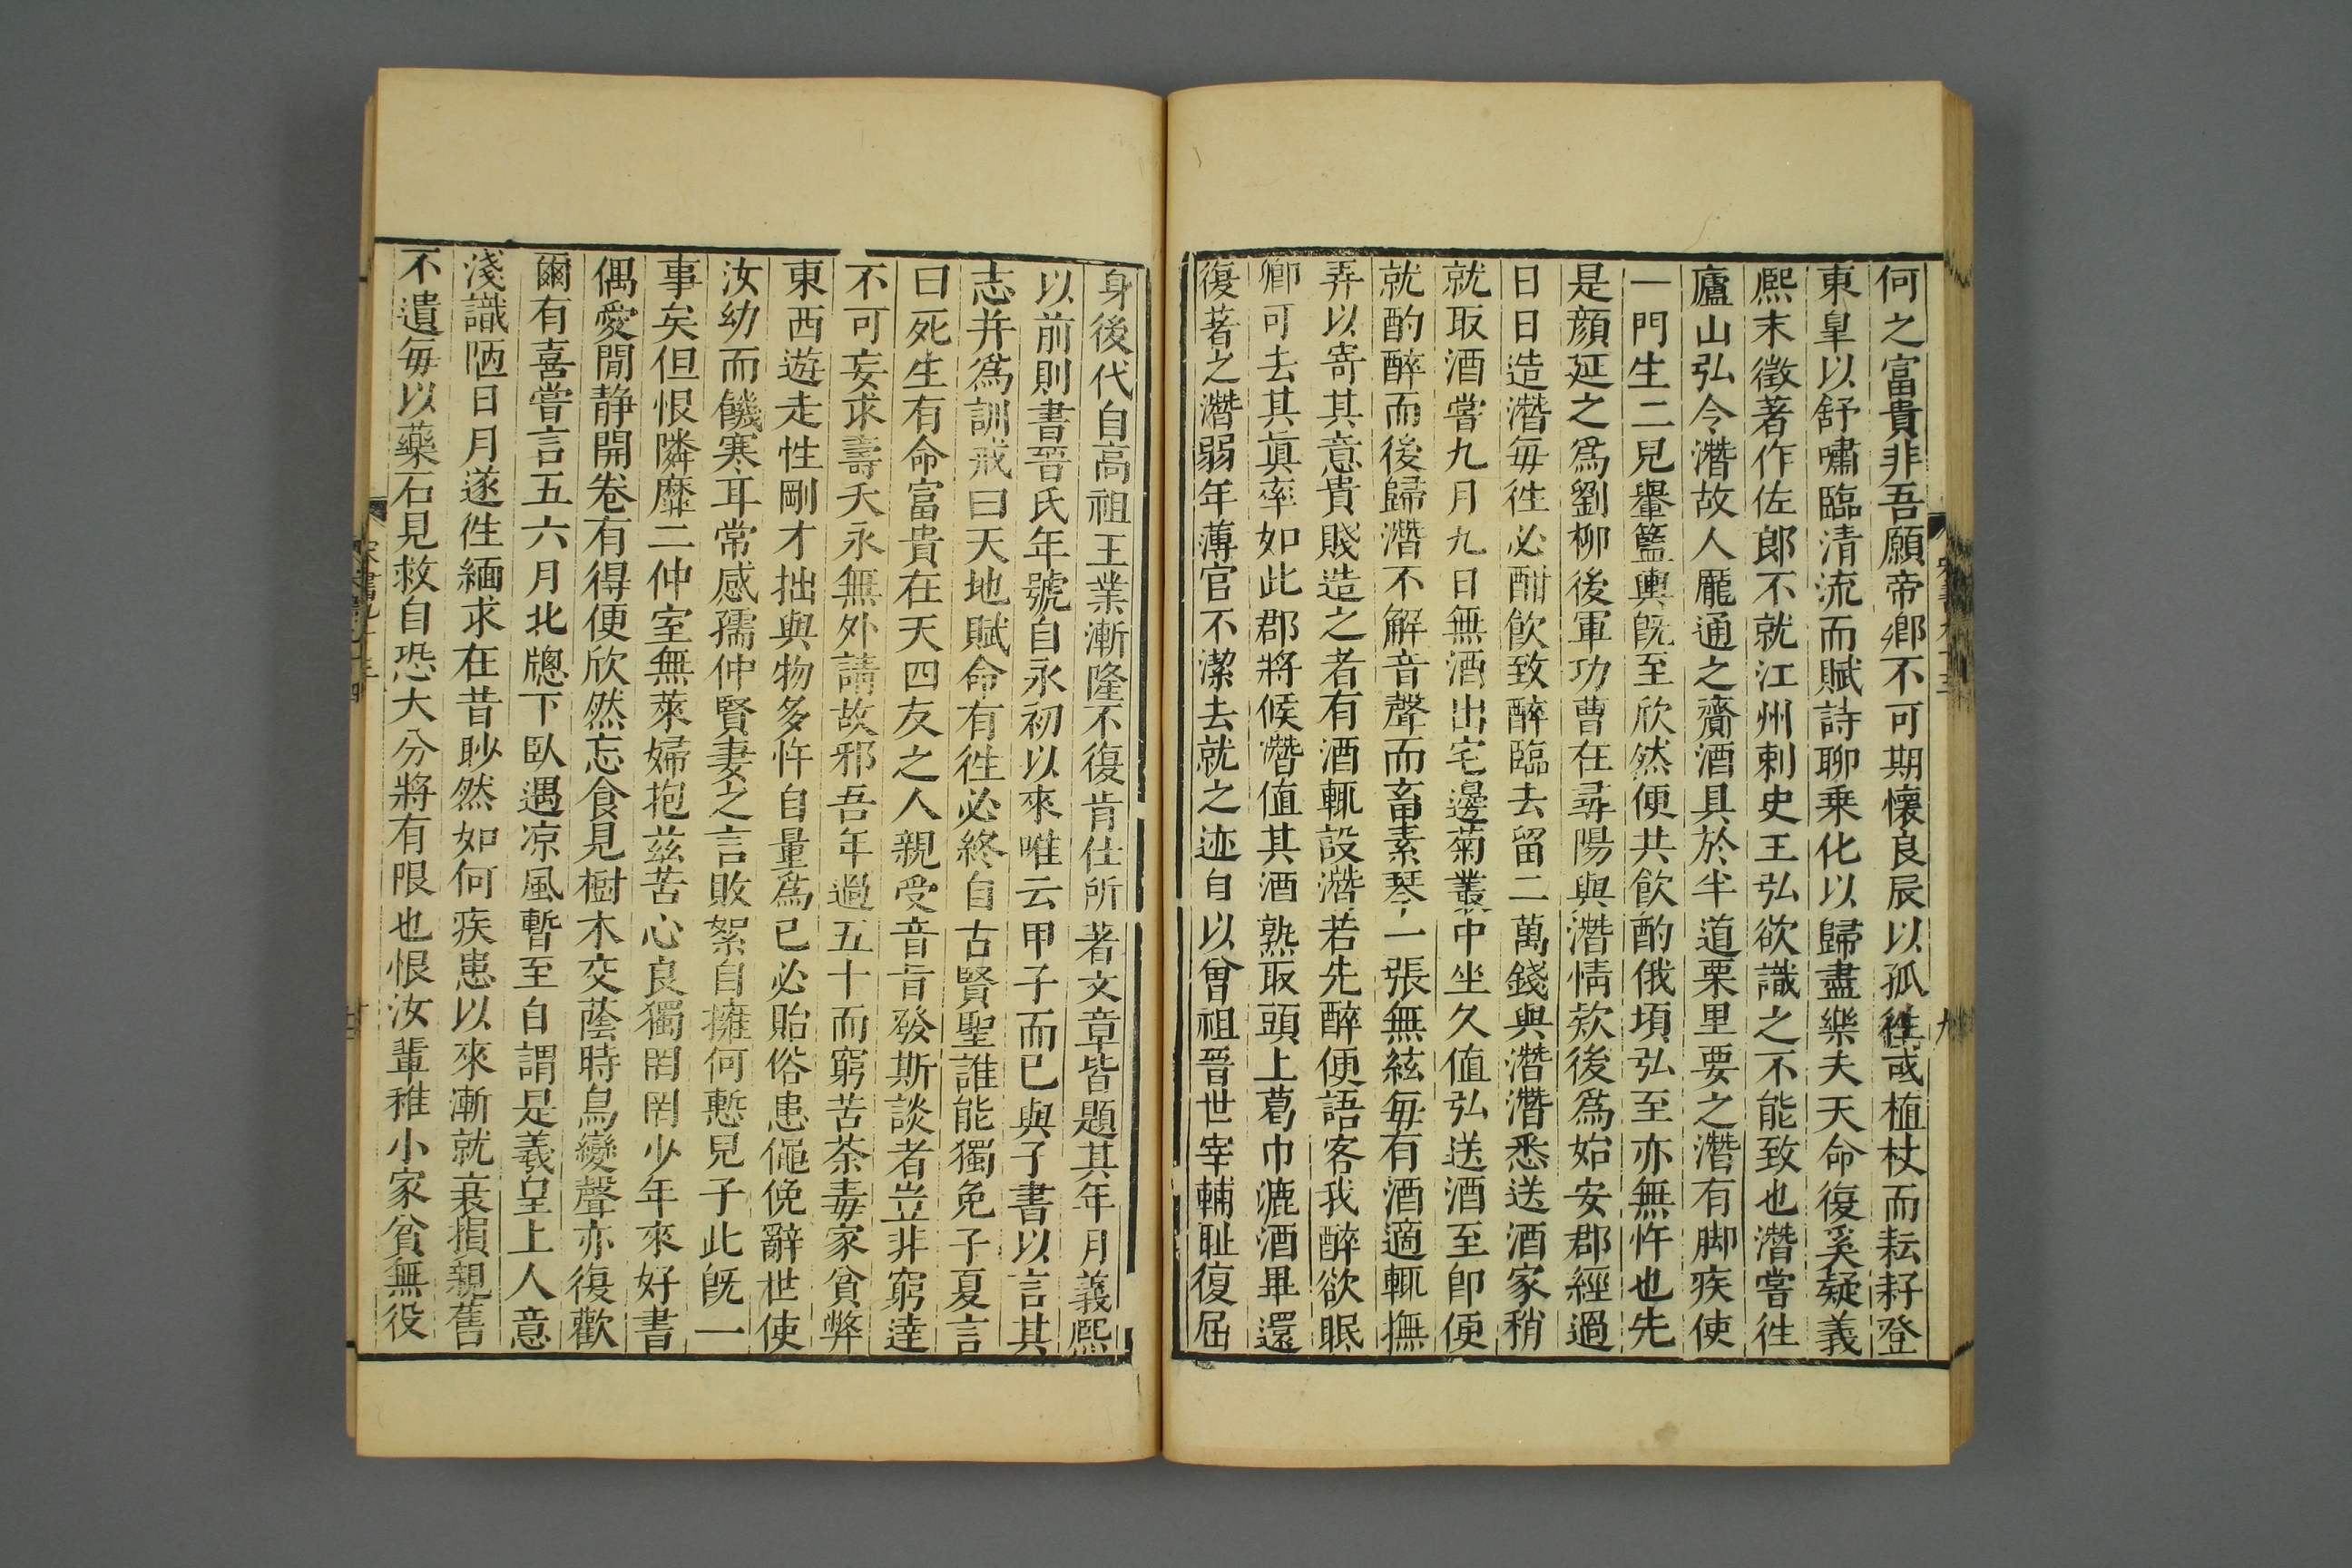 何之富貴非吾願帝鄉不可期懷良辰以孤徃或植杖而耘耔登
東皐以舒嘯臨清流而賦詩聊乗化以歸盡樂夫天命復奚疑義
熙末徵著作佐郎不就江州刺史王弘欲識之不能致也潛嘗徃
廬山弘令潛故人龐通之齎酒具於半道栗里要之潛有脚疾使
一門生二兒轝籃輿旣至欣然便共飮酌俄頃弘至亦無忤也先
是顔延之爲劉柳後軍功曹在尋陽與潛情欵後爲始安郡經過
日日造潛每徃必酣飮致醉臨去留二萬錢與潛潛悉送酒家稍
就取酒嘗九月九日無酒出宅邊菊叢中坐久值弘送酒至卽便
就酌醉而後歸潛不解音聲而畜素琴一張無絃每有酒適輒撫
弄以寄其意貴賤造之者有酒輒設潛若先醉便語客我醉欲眠
卿可去其眞率如此郡將候潛值其酒熟取頭上葛巾漉酒畢還
復著之潛弱年薄官不潔去就之迹自以曾祖晉世宰輔耻復屈
身後代自高祖王業漸隆不復肯仕所著文章皆題其年月義熙
以前則書晉氏年號自永初以來唯云甲子而已與子書以言其
志并爲訓戒曰天地賦命有徃必終自古賢聖誰能獨免子夏言
曰死生有命富貴在天四友之人親受音旨發斯談者豈非窮達
不可妄求壽夭永無外請故邪吾年過五十而窮苦荼毒家貧弊
東西遊走性剛才拙與物多忤自量爲已必貽俗患僶俛辭世使
汝幼而饑寒耳常感孺仲賢妻之言敗絮自擁何慙兒子此旣一
事矣但恨隣靡二仲室無萊婦抱茲苦心良獨罔罔少年來好書
偶愛閒静開卷有得便欣然忘食見樹木交蔭時鳥變聲亦復歡
爾有喜嘗言五六月北牕下臥遇凉風暫至自謂是羲皇上人意
淺識陋日月遂徃緬求在昔眇然如何疾患以來漸就衰損親舊
不遺每以藥石見救自恐大分將有限也恨汝輩稚小家貧無役